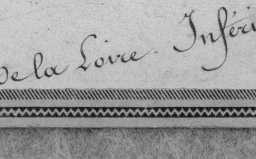 De la Loire. Inféri